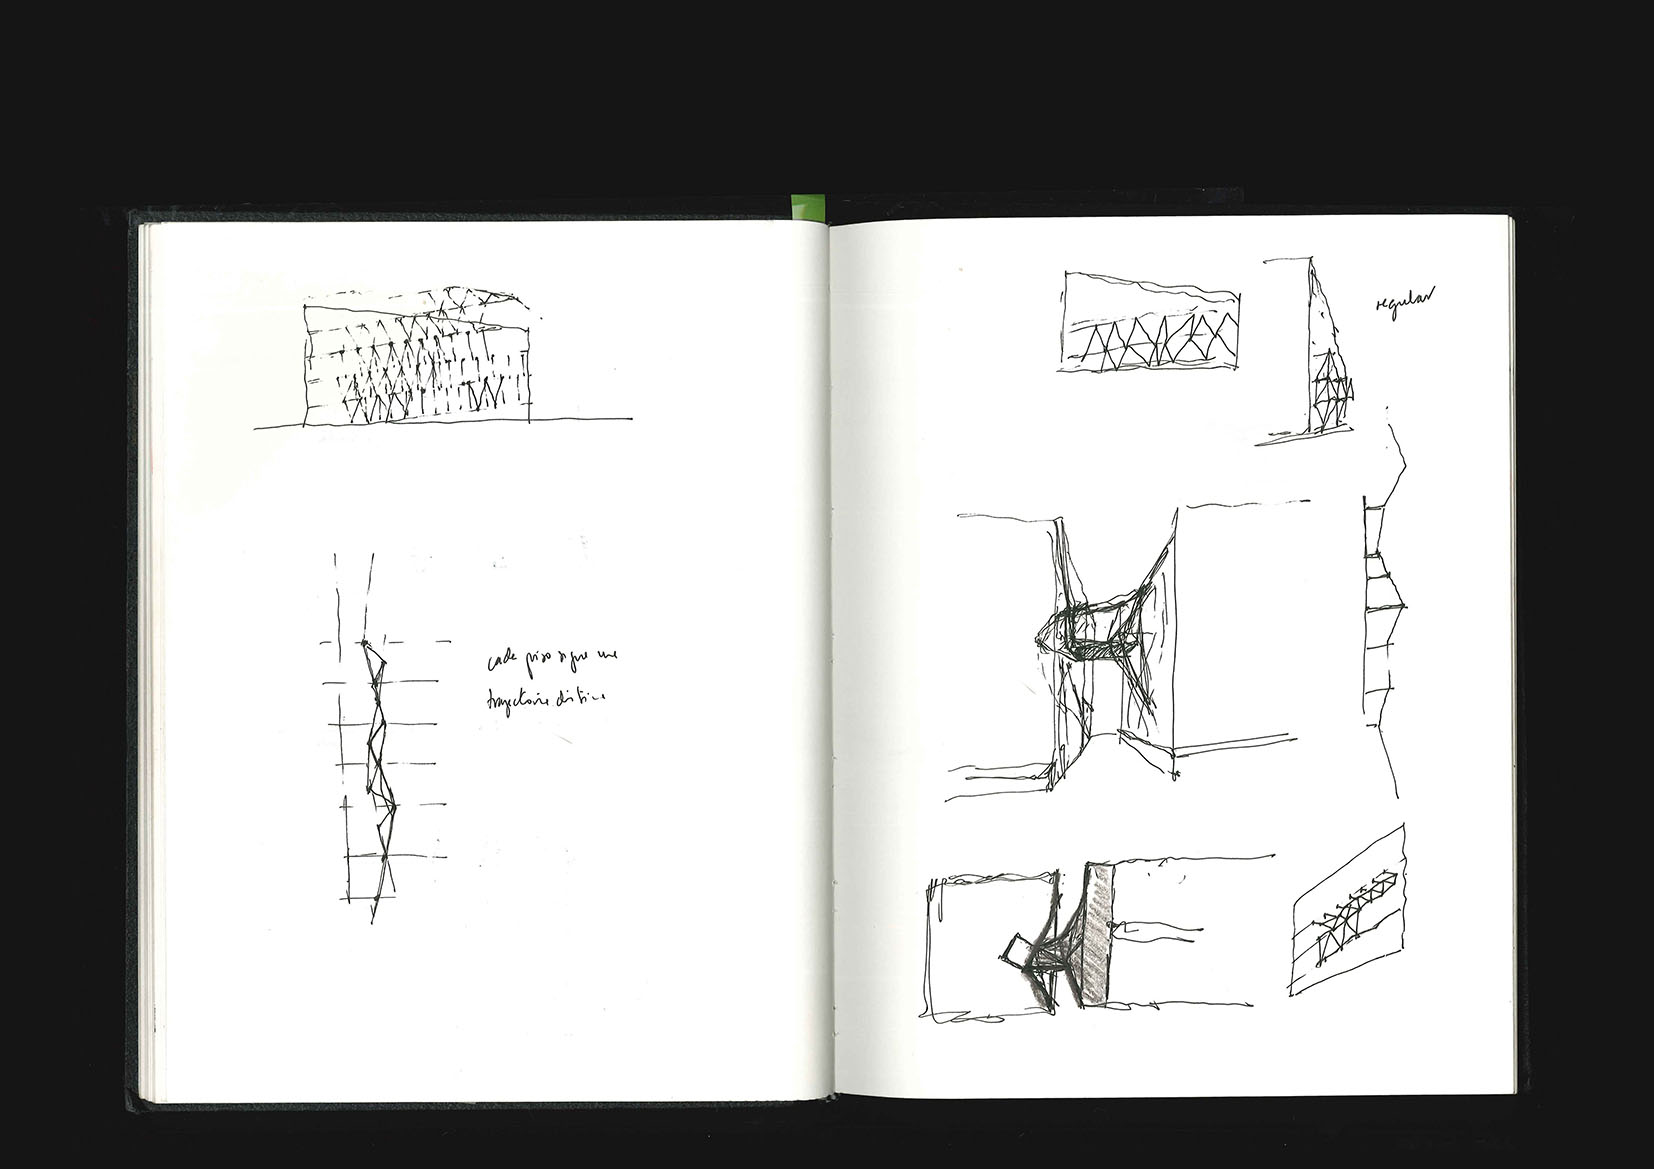 cada piso sigue una
trayectoria distinta
regular